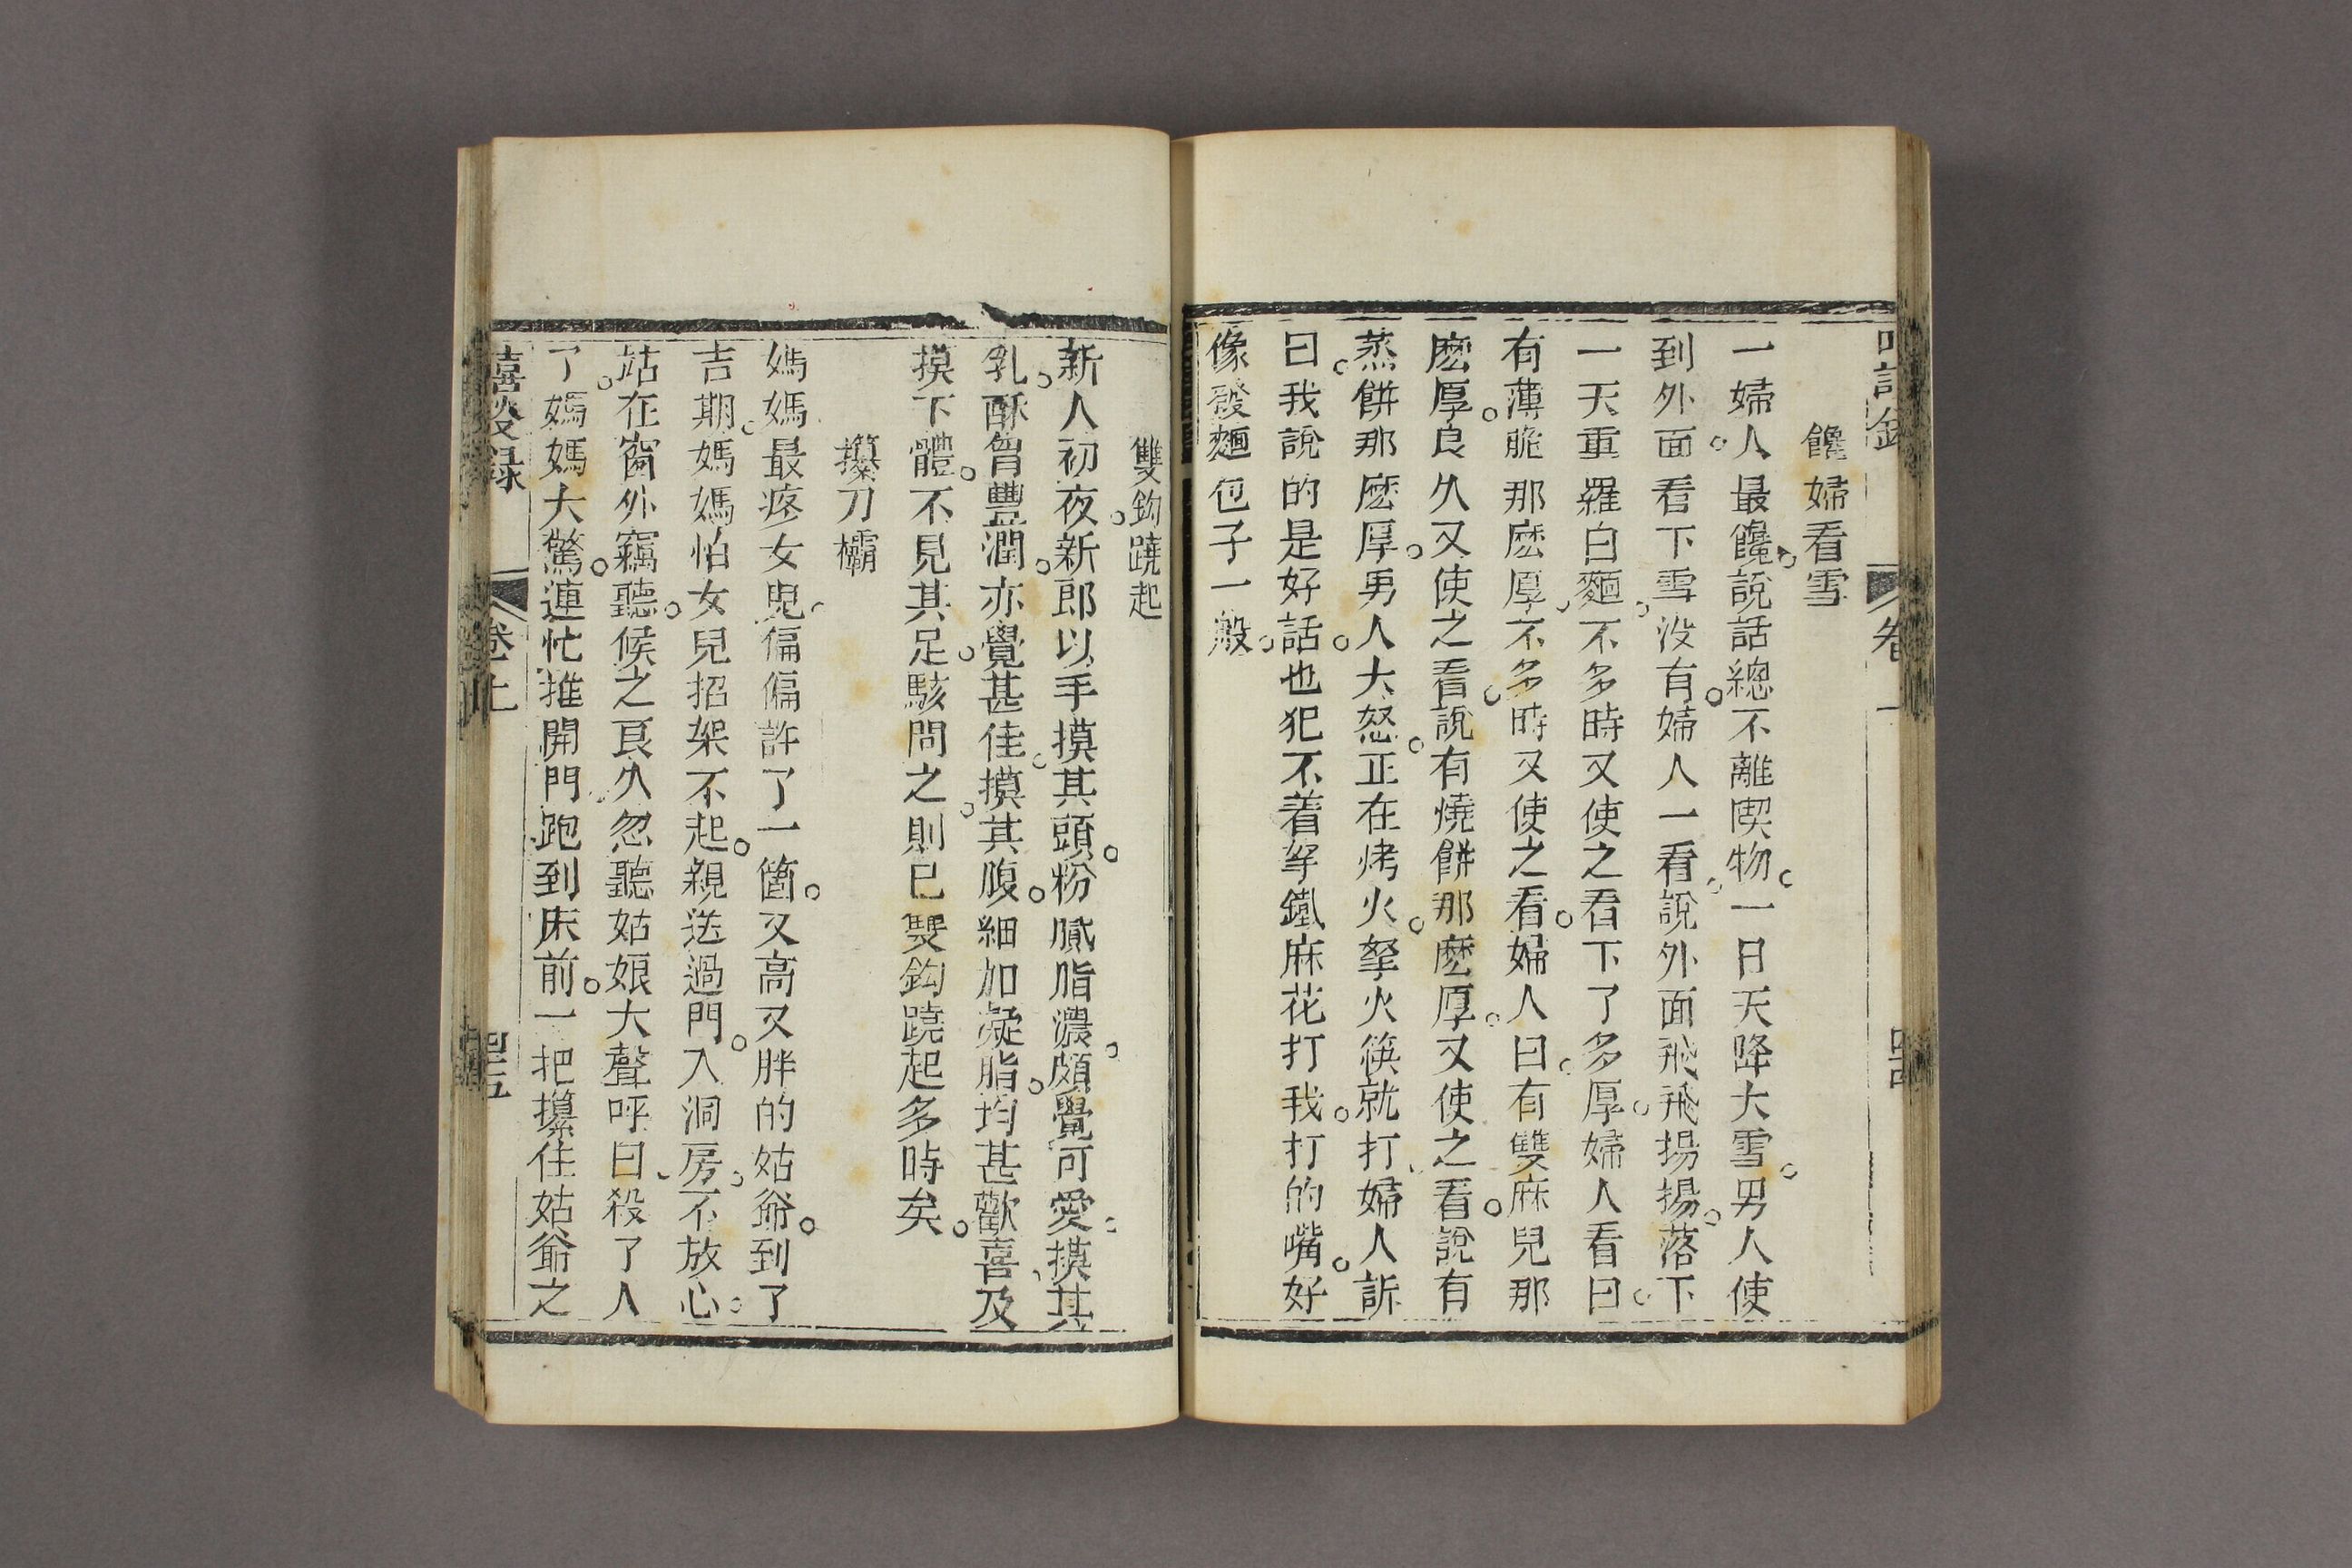 饞婦看雪
一婦人最饞。說話總不離喫物。一日天降大雪。男人使
到外面。看下雪没有。婦人一看。說外面飛飛揚揚。落下
一天重羅白麵。不多時又使之看下了多厚。婦人看曰。
有薄脆那麽厚。不多時又使之看。婦人曰。有雙麻兒那
麽厚。良久又使之看。說有燒餅那麽厚。又使之看。說有
蒸餅那麽厚。男人大怒。正在烤火。拏火筷就打。婦人訴
曰。我說的是好話。也犯不着拏鐵麻花打我。打的嘴。好
像發麵包子一般。
雙鈎蹺起
新人初夜。新郎以手摸其頭。粉膩脂濃。頗覺可愛。摸其
乳。酥胷豐潤。亦覺甚佳。摸其腹。細加凝脂。均甚歡喜。及
摸下體。不見其足。駭問之。則已雙鈎蹺起多時矣。
攥刀欛
媽媽最疼女兒。偏偏許了一箇。又高又胖的姑爺。到了
吉期。媽媽怕女兒招架不起。親送過門。入洞房。不放心。
站在窗外竊聽。候之良久。忽聽姑娘大聲呼曰。殺了人
了。媽媽大驚。連忙推開門。跑到床前。一把攥住姑爺之
嘻談録 卷上